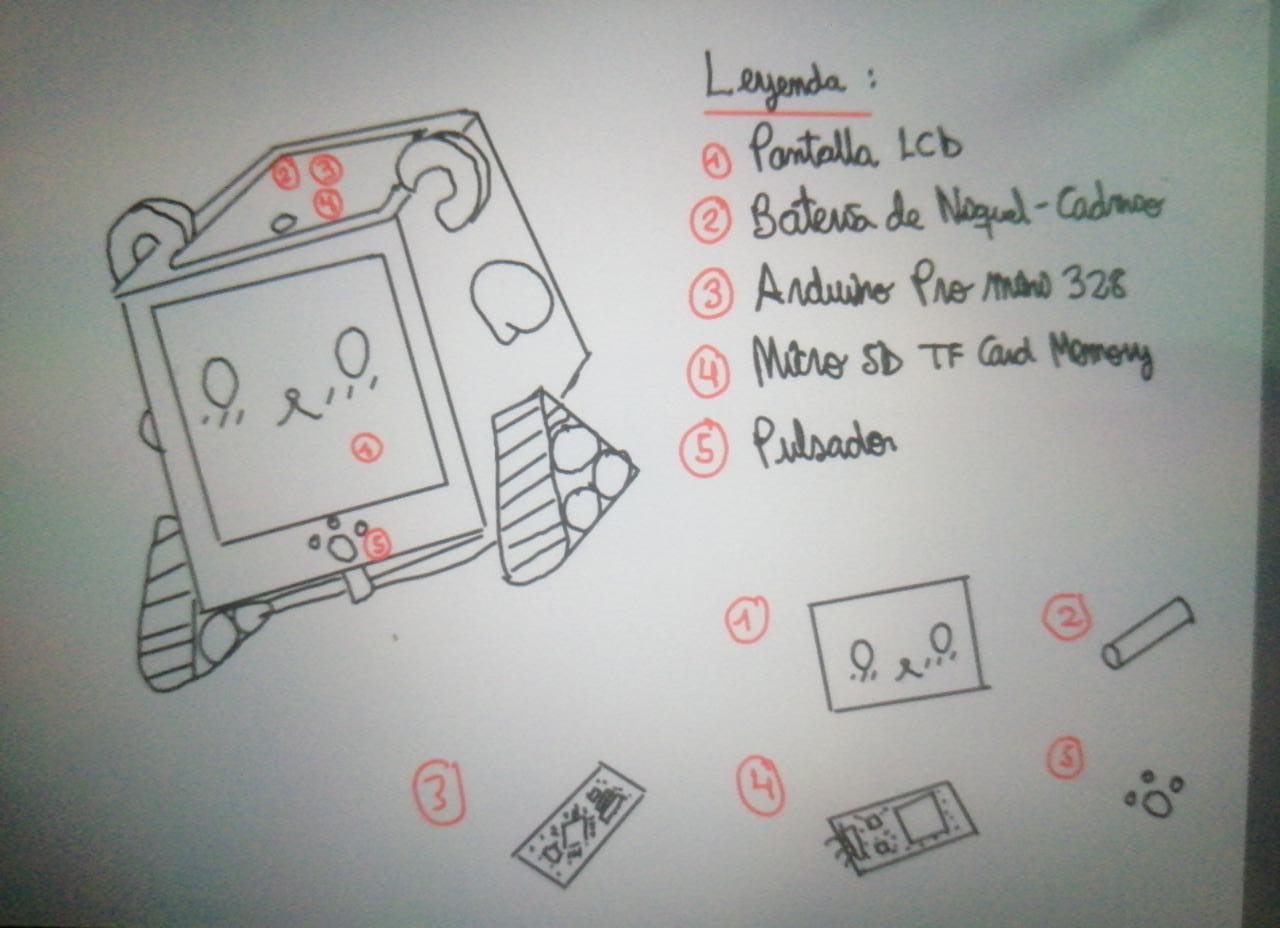 Leyenda :
① Pantalla LCD
② Batería de Níquel-Cadmio
③ Arduino Pro mini 328
④ Micro SD TF Card Memory
⑤ Pulsador
② ③
④
①
⑤
① ②
③ ④ ⑤